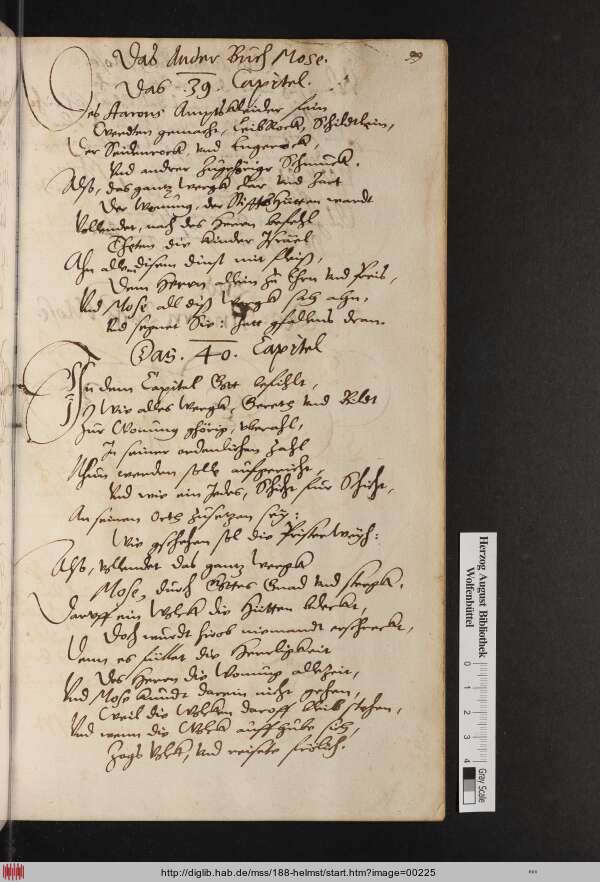 Das Ander Buch Mose.
99
Das .39. Capitel.
Des Aarons Amptskleider sein
Werdten gemacht, Leibrock, Schildtlein,
Der Seidenrock, und Engerock,
Und andrer Schmuck.
Also, das gantz Wergk klar und Zart
Der Wonung, der Stiffthütten wardt
Vollendet, nach des Herrn befehl
Theten die Kinder Israel
Ahn allem disem dinst mit fleiß,
Dem Herrn allein zu Ehrn und Preis,
Und Mose all diß Wergk sah ahn,
Und segnet Sie: hett gfallens dran.
Das .40. Capitel
In dem Capitel Gott befihlt,
Wie alles Wergk, Gereth und Bildt
Zur Wonung ghörig, uberahl,
In seiner ordenlichen Zahl
Nhun werden solle auffgericht,
Und wie ein Jedes, Schicht fur Schicht,
An seinen Orth zusetzen sey:
Wie gschehen sol die Priesterweyh:
Also, vollendet das gantz Wergk
Mose, durch Gottes Gnad und sterck.
Daruff ein Wolck die Hütten bdeckt,
Doch wurdt hirob niemandt erschreckt,
Denn es füllet die Herrligkeit
Des Herrn die Wonung allezeit,
Und Mose kundt darein nicht gehen,
Weil die Wolcken daroff bleib stehen,
Und wenn die Wolck auff hube sich,
Zogs Volck, und reisete frölich.
Herzog August Bibliothek
Wolfenbüttel
0 1 2 3 4
Gray Scale
http://diglib.hab.de/mss/188-helmst/start.htm?image=00225